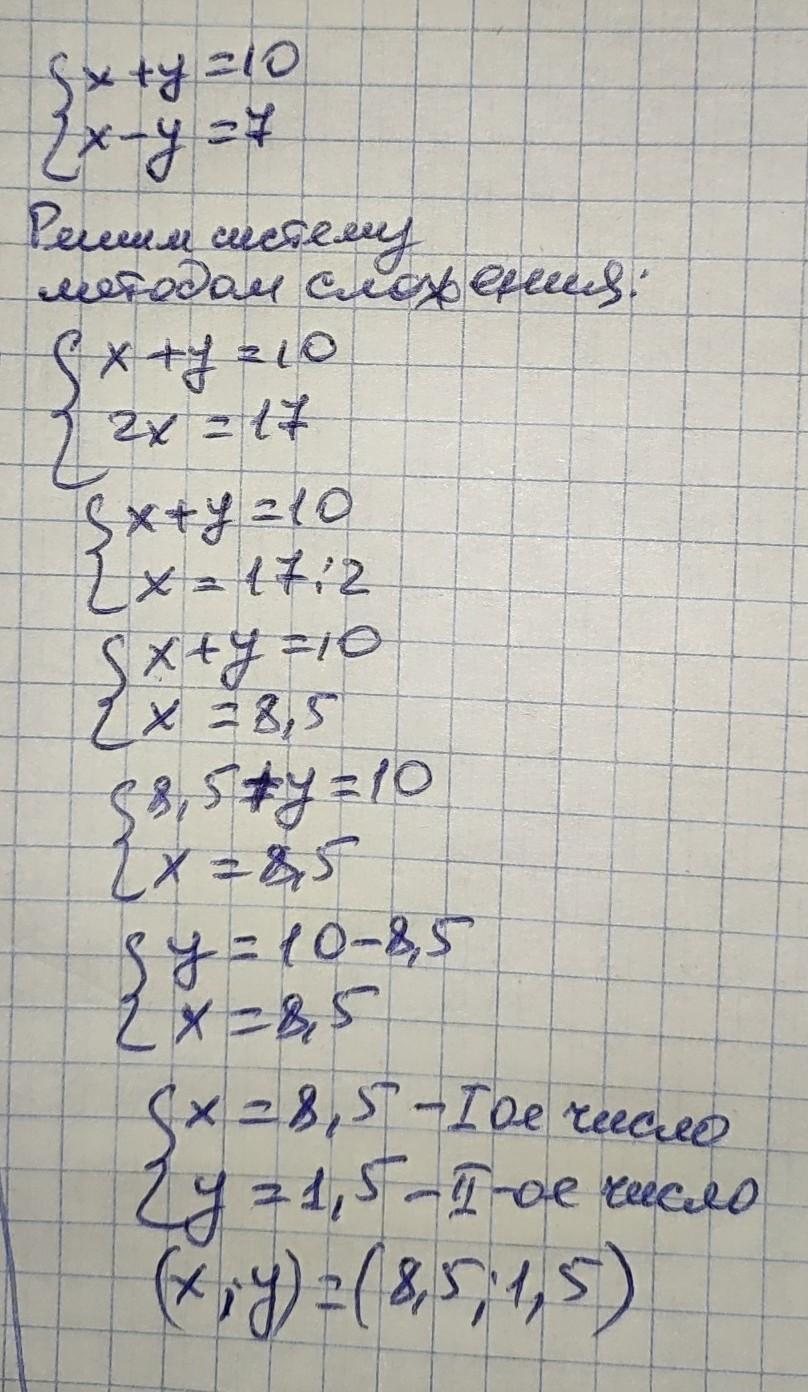 {x+y=10
{x-y=7
Решим систему
методом сложения:
{x+y=10
{2x=17
{x+y=10
{x=17:2
{x+y=10
{x=8,5
{8,5+y=10
{x=8,5
{y=10-8,5
{x=8,5
{x=8,5-I ое число
{y=1,5-II-ое число
(x;y)=(8,5;1,5)